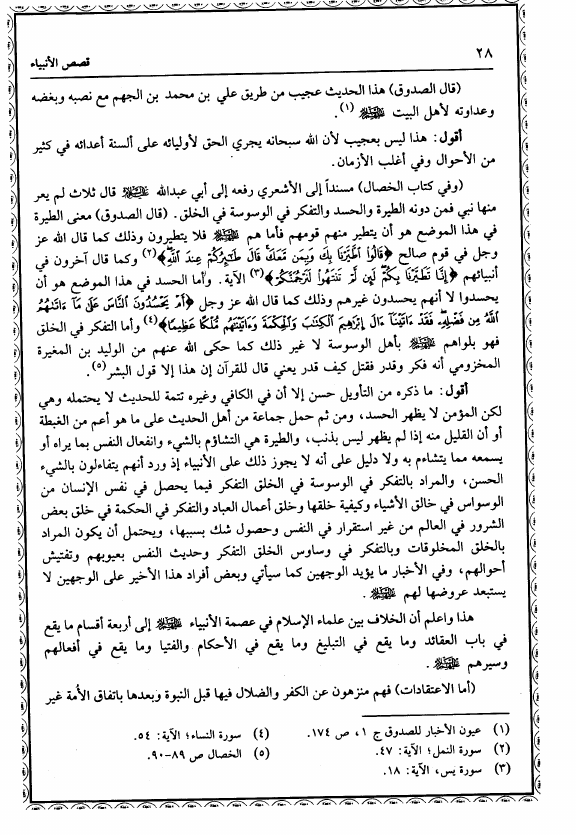 ٢٨
قصص الأنبياء
(قال الصدوق) هذا الحديث عجيب من طريق علي بن محمد بن الجهم مع نصبه وبغضه
وعداوته لأهل البيت (١).
أقول: هذا ليس بعجيب لأن الله سبحانه يجري الحق لأوليائه على ألسنة أعدائه في كثير
من الأحوال وفي أغلب الأزمان.
(وفي كتاب الخصال) مسنداً إلى الأشعري رفعه إلى أبي عبدالله قال ثلاث لم يعر
منها نبي فمن دونه الطيرة والحسد والتفكر في الوسوسة في الخلق. (قال الصدوق) معنى الطيرة
في هذا الموضع هو أن يتطير منهم قومهم فأما هم فلا يتطيرون وذلك كما قال الله عز
وجل في قوم صالح ﴿قَالُوا اطَّيَّرْنَا بِكَ وَبِمَن مَّعَكَ قَالَ طَائِرُكُمْ عِندَ اللَّهِ﴾(٢) وكما قال آخرون في
أنبيائهم ﴿إِنَّا تَطَيَّرْنَا بِكُمْ لَئِن لَّمْ تَنتَهُوا لَنَرْجُمَنَّكُمْ﴾(٣) الآية. وأما الحسد في هذا الموضع هو أن
يحسدوا لا أنهم يحسدون غيرهم وذلك كما قال الله عز وجل ﴿أَمْ يَحْسُدُونَ النَّاسَ عَلَىٰ مَا آتَاهُمُ
اللَّهُ مِن فَضْلِهِ فَقَدْ آتَيْنَا آلَ إِبْرَاهِيمَ الْكِتَابَ وَالْحِكْمَةَ وَآتَيْنَاهُم مُّلْكًا عَظِيمًا﴾(٤) وأما التفكر في الخلق
فهو بلواهم بأهل الوسوسة لا غير ذلك كما حكى الله عنهم من الوليد بن المغيرة
المخزومي أنه فكر وقدر فقتل كيف قدر يعني قال للقرآن إن هذا إلا قول البشر(٥).
أقول: ما ذكره من التأويل حسن إلا أن في الكافي وغيره تتمة للحديث لا يحتمله وهي
لكن المؤمن لا يظهر الحسد، ومن ثم حمل جماعة من أهل الحديث على ما هو أعم من الغبطة
أو أن القليل منه إذا لم يظهر ليس بذنب، والطيرة هي التشاؤم بالشيء وانفعال النفس بما يراه أو
يسمعه مما يتشاءم به ولا دليل على أنه لا يجوز ذلك على الأنبياء إذ ورد أنهم يتفاءلون بالشيء
الحسن، والمراد بالتفكر في الوسوسة في الخلق التفكر فيما يحصل في نفس الإنسان من
الوسواس في خالق الأشياء وكيفية خلقها وخلق أعمال العباد والتفكر في الحكمة في خلق بعض
الشرور في العالم من غير استقرار في النفس وحصول شك بسببها، ويحتمل أن يكون المراد
بالخلق المخلوقات وبالتفكر في وساوس الخلق التفكر وحديث النفس بعيوبهم وتفتيش
أحوالهم، وفي الأخبار ما يؤيد الوجهين كما سيأتي وبعض أفراد هذا الأخير على الوجهين لا
يستبعد عروضها لهم.
هذا واعلم أن الخلاف بين علماء الإسلام في عصمة الأنبياء إلى أربعة أقسام ما يقع
في باب العقائد وما يقع في التبليغ وما يقع في الأحكام والفتيا وما يقع في أفعالهم
وسيرهم.
(أما الاعتقادات) فهم منزهون عن الكفر والضلال فيها قبل النبوة وبعدها باتفاق الأمة غير
(١) عيون الأخبار للصدوق ج ١، ص ١٧٤.
(٢) سورة النمل؛ الآية: ٤٧.
(٣) سورة يس، الآية: ١٨.
(٤) سورة النساء؛ الآية: ٥٤.
(٥) الخصال ص ٨٩-٩٠.